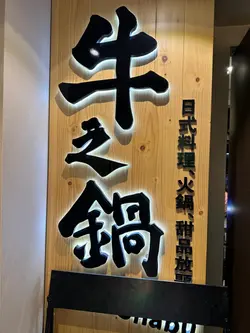 牛之鍋
日式料理、火鍋、甜品放題